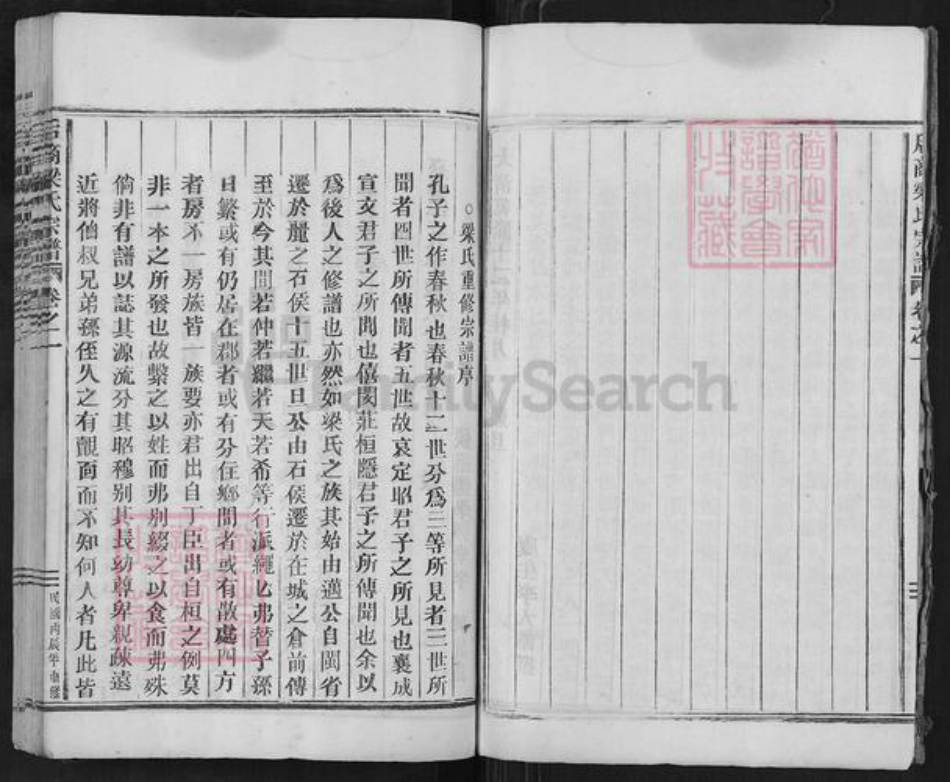 梁氏宗譜 卷之一
○梁氏重修宗譜序
孔子之作春秋也春秋十二世分爲三等所見者三世所
聞者四世所傳聞者五世故哀定昭君子之所見也襄成
宣文君子之所聞也僖閔莊桓隱君子之所傳聞也余以
爲後人之修譜也亦然如梁氏之族其始由邁公自閩省
遷於麗之石侯十五世旦公由石侯遷於在城之倉前傳
至於今其間若仲若繼若天若希等行派繩匕弗替子孫
日繁或有仍居在郡者或有分住鄉間者或有散處四方
者房不一房族皆一族要亦君出自丁臣出自桓之例莫
非一本之所發也故繫之以姓而弗别綴之以食而弗殊
倘非有譜以誌其源流分其昭穆别其長幼尊卑親疎遠
近將伯叔兄弟孫侄久之有覿面而不知何人者凡此皆
梁氏宗譜 卷之一
民國丙辰年重修
FamilySearch